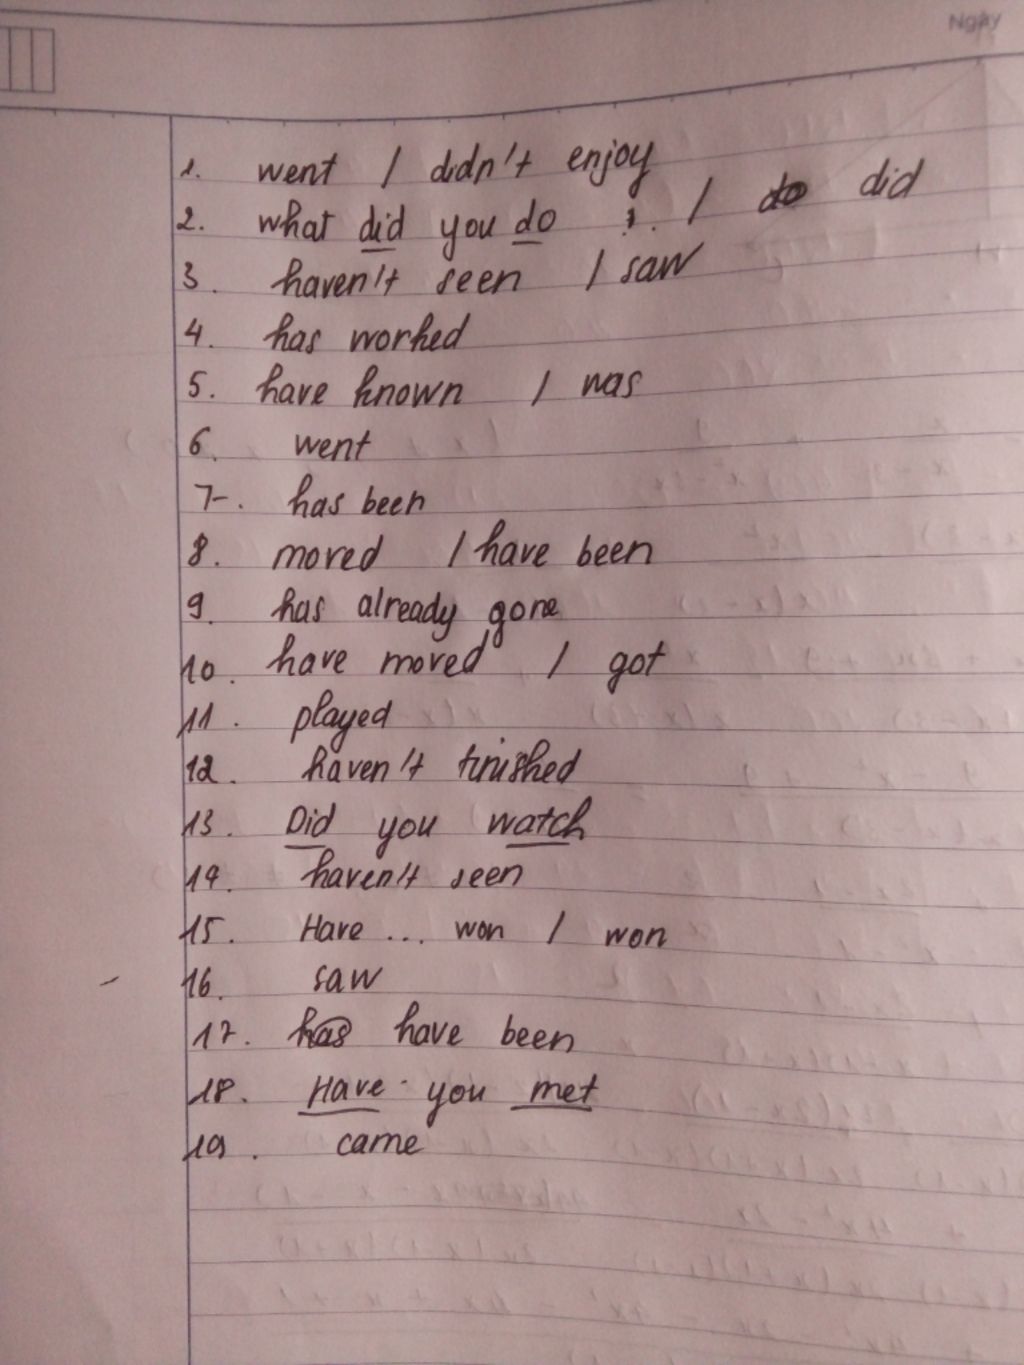 Ngày
1. went / didn't enjoy
2. what did you do ?. / do did
3. haven't seen / saw
4. has worked
5. have known / was
6. went
7. has been
8. moved / have been
9. has already gone
10. have moved / got
11. played
12. haven't finished
13. Did you watch
14. haven't seen
15. Have ... won / won
16. saw
17. has have been
18. Have you met
19. came